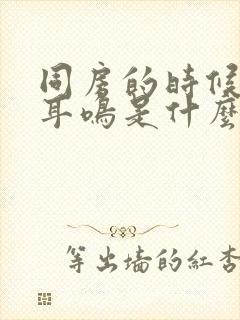 同房的時候
耳鳴是什麼
等出墙的紅杏